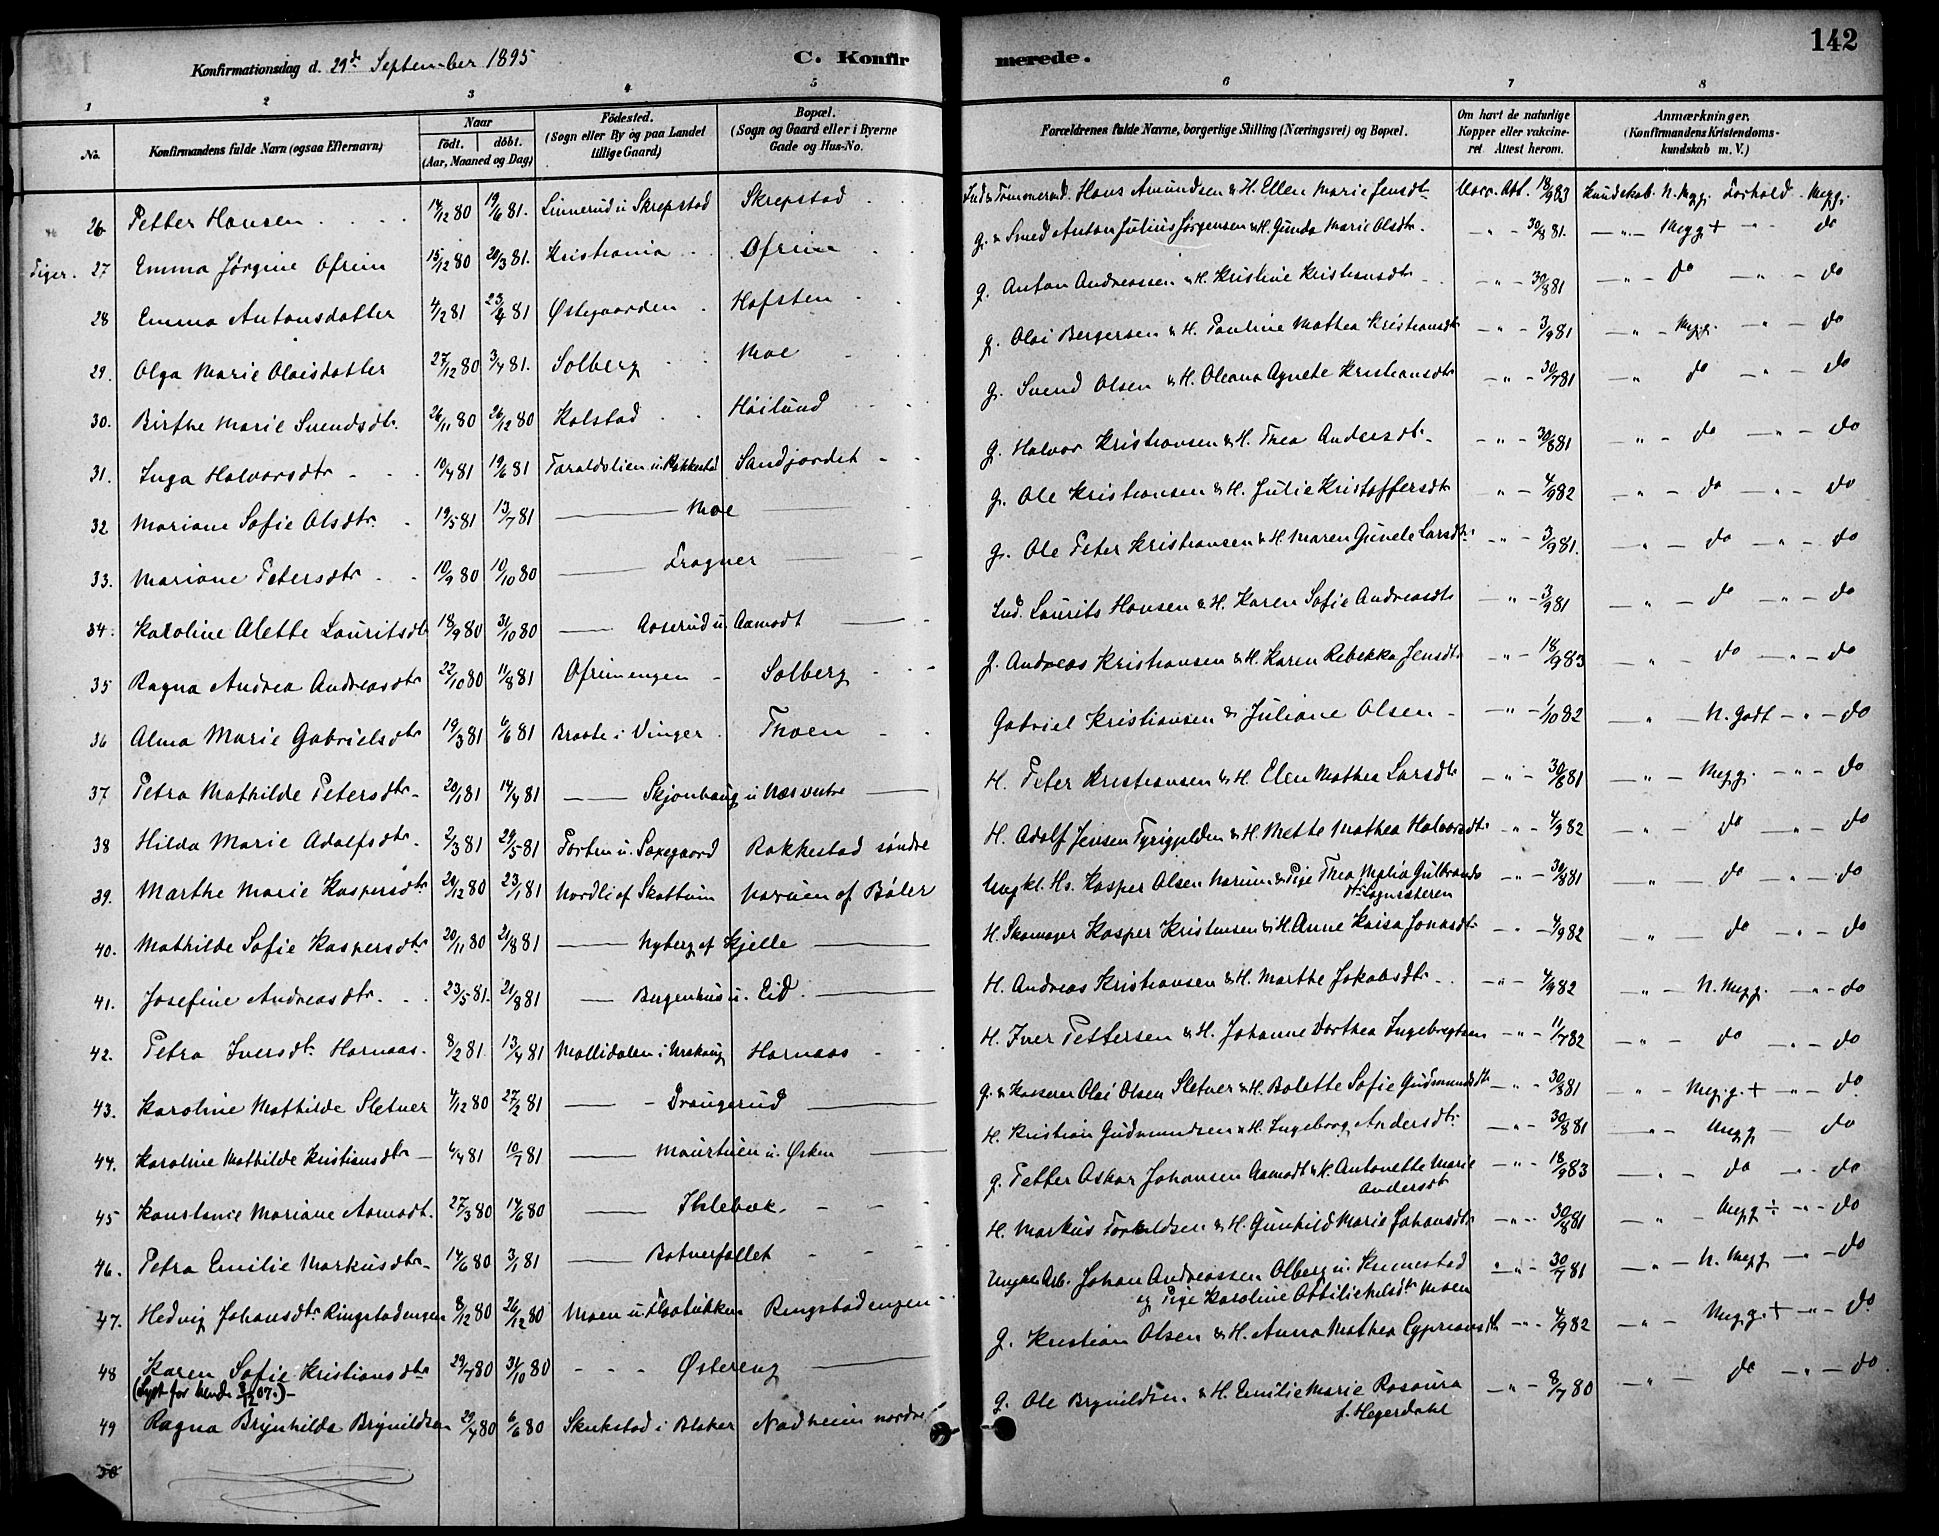 142
Konfirmationsdag d. 29de September 1895 C. Konfirmerede.
1 2 3 4 5 6 7 8
No. Konfirmandens fulde Navn (ogsaa Efternavn) Naar født. døbt. (Aar, Maaned og Dag) Fødested. (Sogn eller By og paa Landet tillige Gaard) Bopæl. (Sogn og Gaard eller i Byerne Gade og Hus-No. Forældrenes fulde Navne, borgerlige Stilling (Næringsvei) og Bopæl. Om havt de naturlige Kopper eller vakcineret Attest herom. Anmærkninger. (Konfirmandens Kristendomskundskab m. V.)
26 Petter Hansen 14/12 80 19/6 81. Linnerud u Skrepstad Skrepstad Ind. Tømmermd. Hans Amundsen & H. Ellen Marie Jensdtr Vacc. Att. 18/9 83 Kundskab. N. Megg. Forhold. Megg.
Piger. 27 Emma Jørgine Ofrim 15/12 80 20/3 81. Kristiania Ofrim G. & Smed Anton Julius Jørgensen & H. Gunda Marie Olsdtr. - " - 30/8 81. - " - Megg + - " - do
28 Emma Antonsdatter 4/2 81 23/4 81 Østegaarden Hofsten G. Anton Andreassen & H. Kristine Kristiansdtr - " - 30/8 81 - " - do - " - do
29. Olga Marie Olaisdatter 27/12 80 3/4 81. Solberg Moe G. Olai Bergersen & H. Pauline Mathea Kristiansdtr - " - 3/9 81 - " - Megg. - " - do
30. Birthe Marie Svendsdtr. 26/11 80 26/12 80 Kolstad Høilund G. Svend Olsen & H. Oleana Agnete Kristiansdtr - " - 30/7 81 - " do - " - do
31. Inga Halvorsdtr 10/4 81 19/6 81 Taraldslien u. Rakkestad Sandjordet G. Halvor Kristiansen & H. Thea Andersdtr. - " - 30/8 81 - " - do - " - do
32 Mariane Sofie Olsdtr. 19/5 81 13/7 81 — Moe — G. Ole Kristiansen & H. Julie Kristoffersdtr " - 4/9 82 - " - do - " - do
33. Mariane Petersdtr 10/9 80 10/10 80 — Fragner — G. Ole Peter Kristiansen & H. Maren Gunele Larsdtr. - " - 3/9 81. - " - do - " - do
34. Karoline Alette Lauritsdtr 18/9 80 31/10 80 — Aaserud u. Aamodt — Ind. Laurits Hansen & H. Karen Sofie Andreasdtr - " - 3/9 81 - " - do - " - do
35 Ragna Andrea Andreasdtr 22/10 80 11/8 81 Ofrimengen Solberg G. Andreas Kristiansen & H. Karen Rebekka Jensdtr. - " - 18/9 83 - " - do - " - do
36 Alma Marie Gabrielsdtr 19/3 81 6/6 81 Braate i Vinger Thoen Gabriel Kristiansen & Juliane Olsen - " - 1/10 82 - " - N. Godt - " - do
37 Petra Mathilde Petersdtr. 20/1 81 14/4 81 — Skjønhaug u Næs vestre — H. Peter Kristiansen & H Elen Mathea Larsdtr - " - 30/8 81 - " - Megg. - " - do
38 Hilda Marie Adolfsdtr. 2/3 81 29/5 81 Porten u. Saxegaard Rakkestad søndre H. Adolf Jensen Tyrigjelden & H. Mette Mathea Halvorsdtr. " - 4/9 82 - " - do - " - do
39. Marthe Marie Kaspersdtr 29/12 80 23/1 81 Nordli af Skattum Naruen af Bøler Ungkl. Hs. Kasper Olsen Naruen & Pige Thea Maria Gulbrands - " - 30/8 81 - " - do - " - do
dtr Lognssteren
40. Mathilde Sofie Kaspersdtr 20/11 80 21/8 81 — Nyberg af Kjelle — H. Skomager Kasper Kristensen & H. Anne Kaisa Jonasdtr - " - 4/9 82 - " - do - " - do
41. Josefine Andreasdtr. 23/5 81. 21/8 81 — Bergenhus u. Eid. — H. Andreas Kristiansen & H. Marthe Jakobsdtr. - " - 4/9 82 - " - N. Megg. - " - do
42. Petra Iversdtr. Harnaas. 8/2 81. 13/4 81 Mollidalen i Urskoug Harnaas H. Iver Pettersen & H. Johanne Dorthea Ingebregtsen - " - 11/7 82 - " - do - " - do
43. Karoline Mathilde Sletner 4/12 80 27/2 81 — Draugerud — G. & Kasserer Olai Olsen Sletner & H. Bolette Sofie Gudmundsdtr - " - 30/8 81 - " - Megg. + - " - do
44. Karoline Mathilde Kristiansdtr 4/4 81 10/7 81 — Maurtuen u. Østen — H. Kristian Gudmundsen & H. Ingeborg Andersdtr. - " - 30/8 81 - " - Megg - do
45 Konstance Mariane Aamodt. 27/3 80 14/6 80 — Ihlebæk. G. Petter Oskar Johansen Aamodt & H. Antonette Marie - " - 18/9 83 - " - do - " - do
Andersdtr
46. Petra Emilie Markusdtr. 14/6 80 3/1 81 — Botnerfallet H. Markus Torkildsen & H. Gunhild Marie Johansdtr - " - 30/8 81 - " - Megg ÷ - " - do
47. Hedvig Johansdtr. Ringstadengen 8/12 80 26/12 80 Moen u Flaatukken Ringstadengen Ungkarl Arb. Johan Andreassen Olberg u. Kunnestad - " - 30/7 81 - " - N. Megg - " - do
og Pige Karoline Ottilie Nilsdtr. Moen
48 Karen Sofie Kristiansdtr 29/7 80 31/10 80 - - - Østereng — G. Kristian Olsen & H. Anna Mathea Cypriansdtr - " - 4/9 82 - " - Megg. + - " - do
(Lyst for hende 3/12 07.)
49 Ragna Brynhilda Brynildsen 29/4 80 6/6 80 Skukstad i Blaker Nadheim nordre G. Ole Brynildsen & H. Emilie Marie Rosaura - " - 8/7 80 - " - do - " - do.
f. Hegerdahl
50